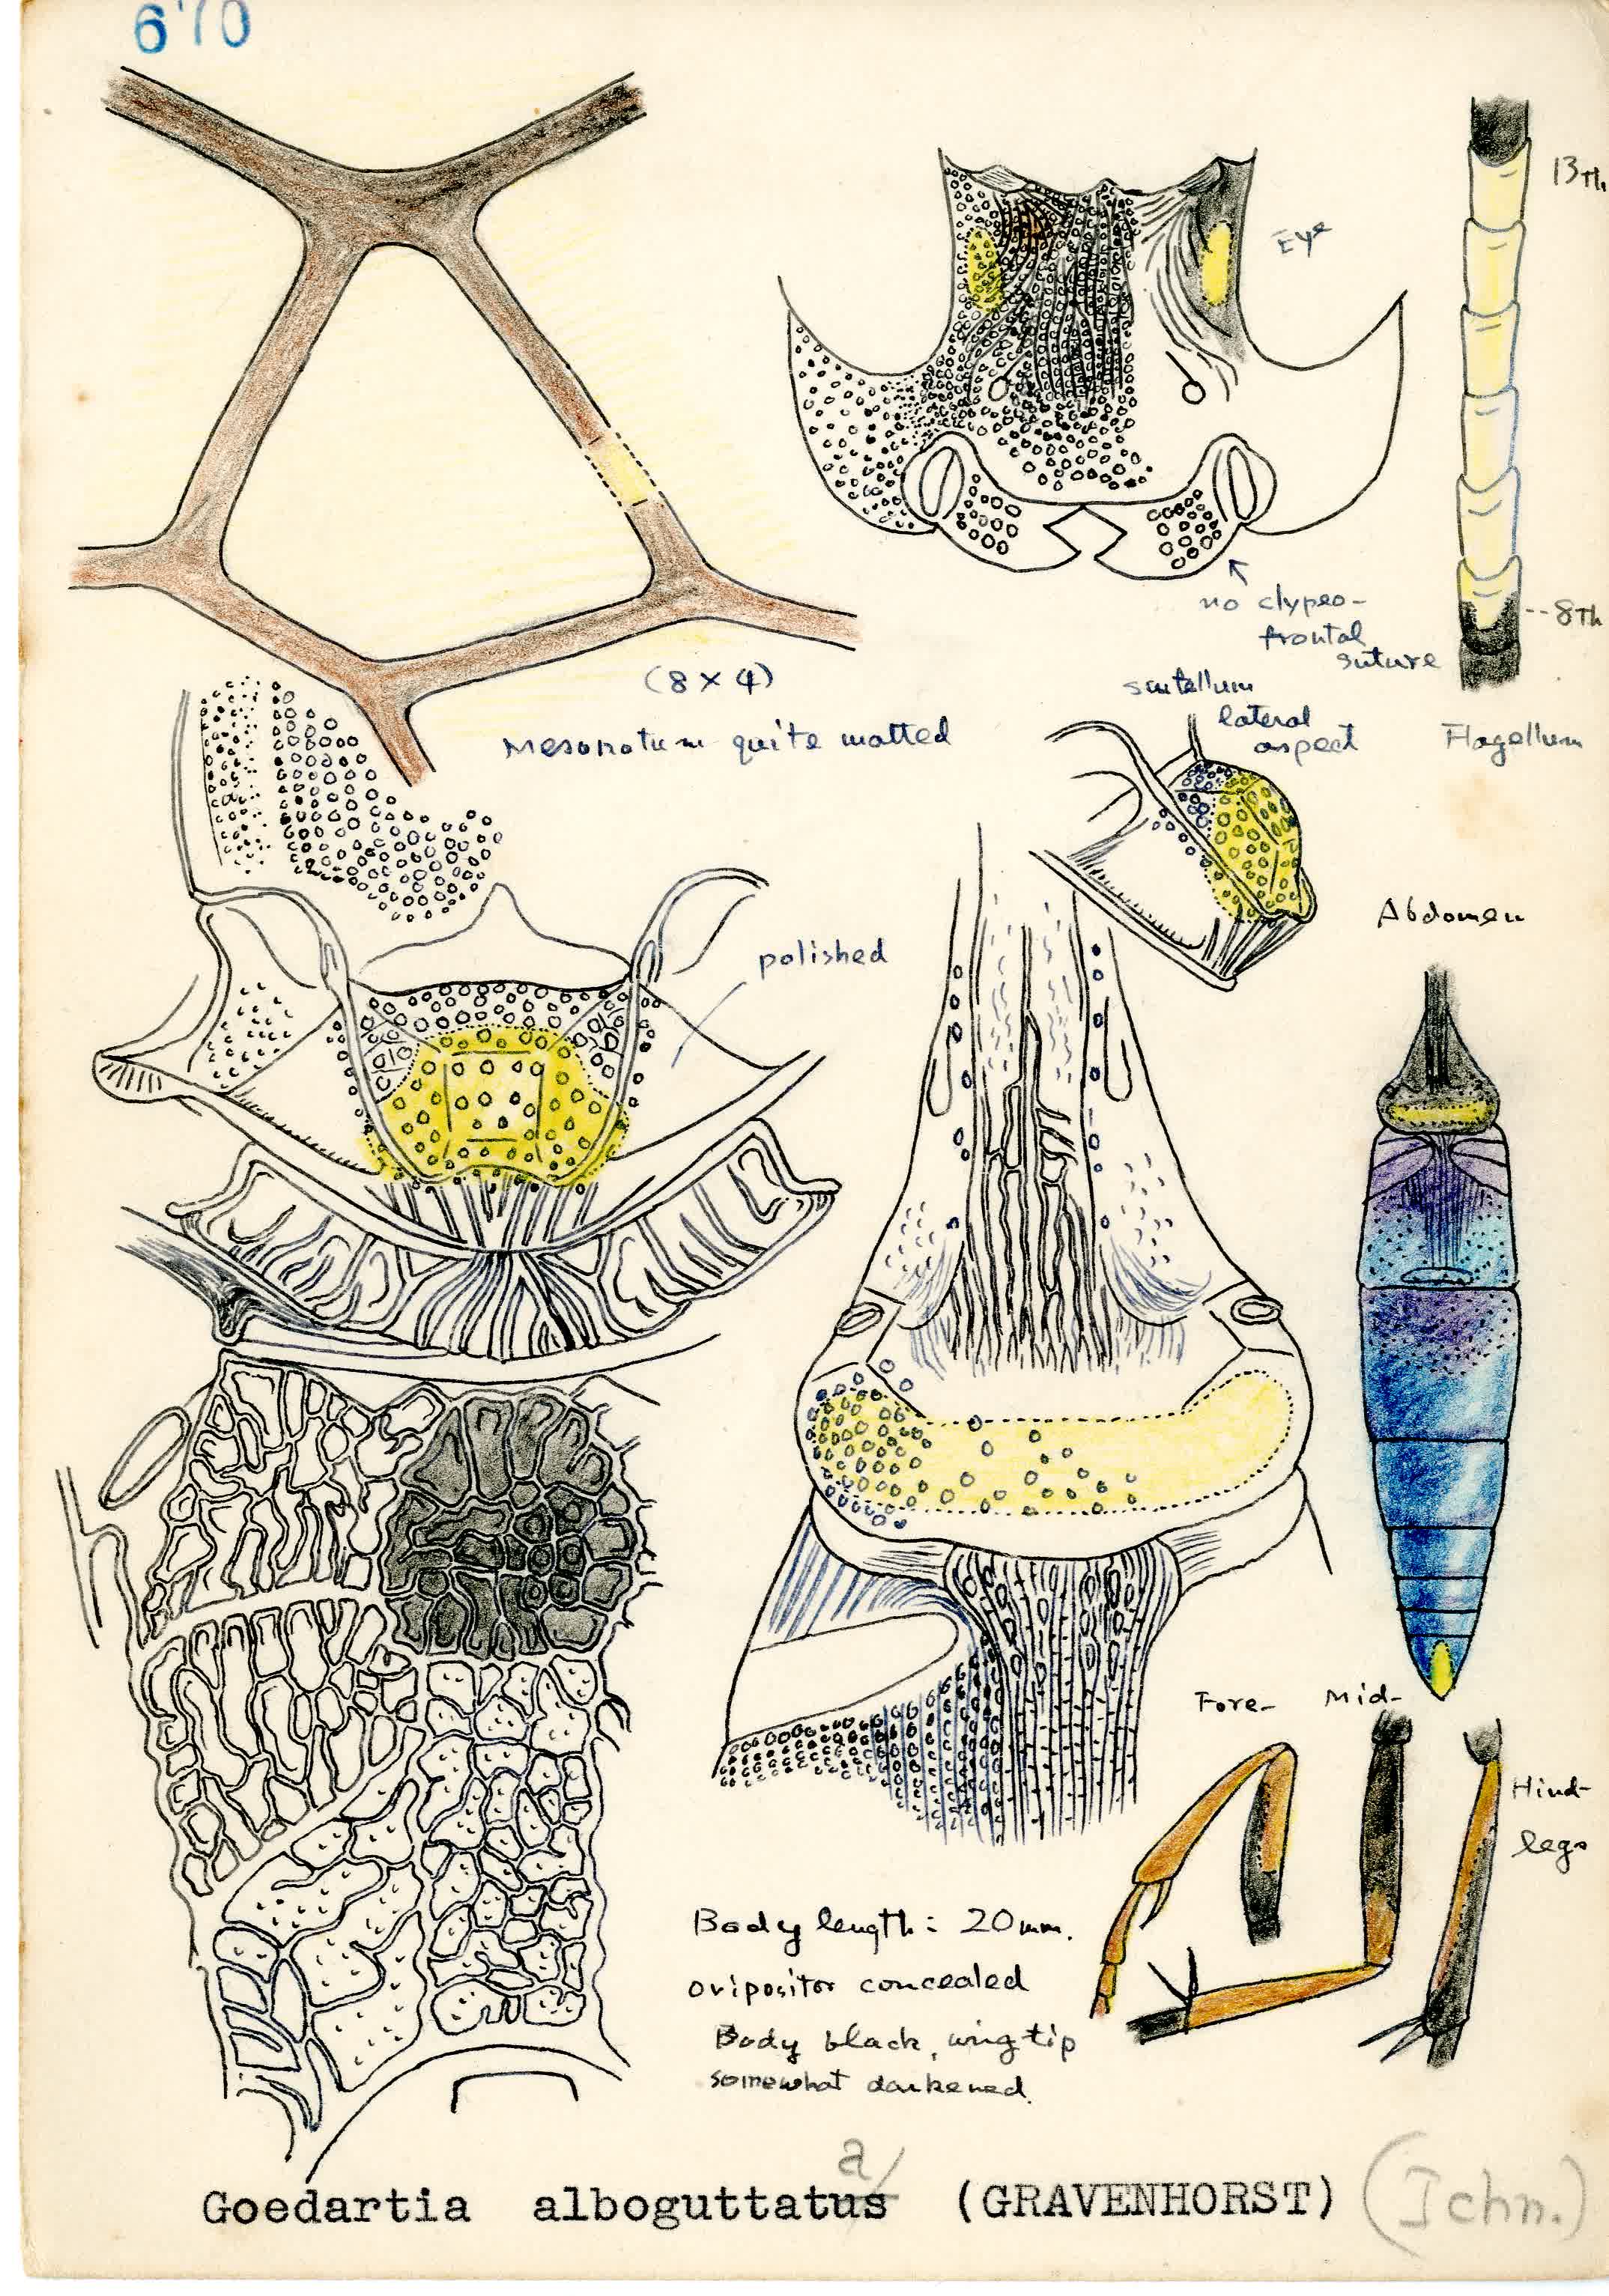 670
13Th.
Eye
no clypeo-
frontal
suture
--8Th
(8 x 4)
Mesonotum quite matted
scutellum
lateral
aspect
Flagellum
polished
Abdomen
Fore-
Mid-
Hind-
legs
Body length: 20mm.
ovipositor concealed
Body black, wing tip
somewhat darkened.
a/
Goedartia alboguttatus (GRAVENHORST) (Ichn.)